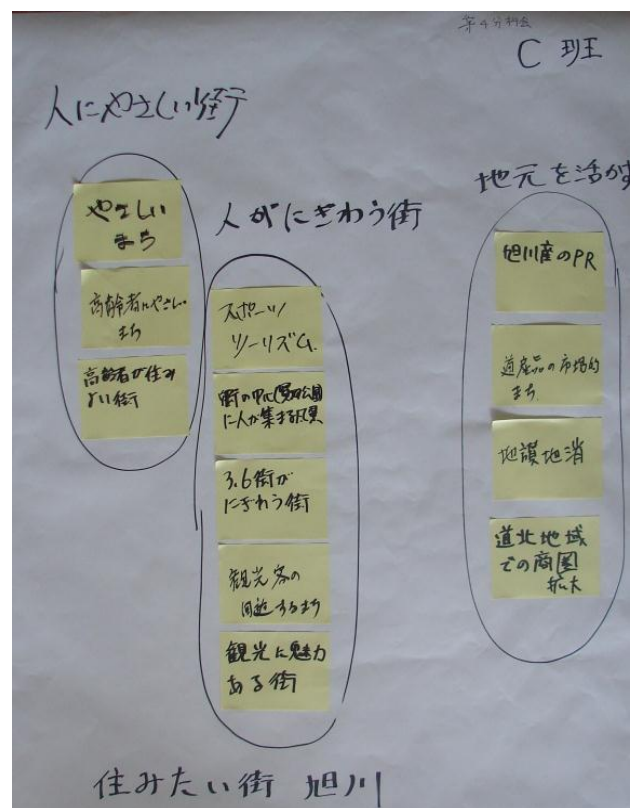 第4分科会
C班
人にやさしい街
やさしい
まち
高齢者にやさしい
まち
高齢者が住み
よい街
人がにぎわう街
スポーツ
ツーリズム
街の中心(買物公園
に人が集まる風景
3.6街が
にぎわう街
観光客の
するまち
観光に魅力
ある街
地元を活かす
旭川産のPR
道産品の市場的
まち
地護地消
道北地域
での商圏
拡大
住みたい街 旭川